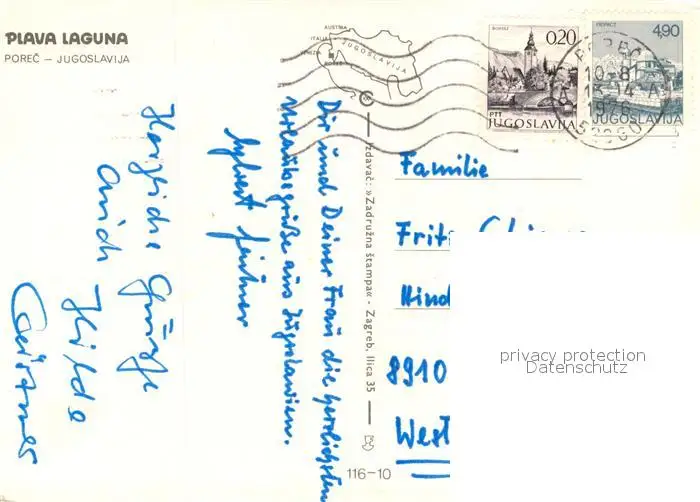 PLAVA LAGUNA
POREČ – JUGOSLAVIJA
AUSTRIA
ITALIA
VENEZIA
POREČ
JUGOSLAVIJA
0,20
PTT
JUGOSLAVIJA
4,90
JUGOSLAVIJA
1976
Dir und Deiner Frau die herzlichsten
Urlaubsgrüße aus Jugoslawien.
Herzliche Grüße
Auch Hilde
Izdavač: »Zadružna štampa« - Zagreb, Ilica 35
116-10
Familie
Fritz
Hind
8910
West
privacy protection
Datenschutz